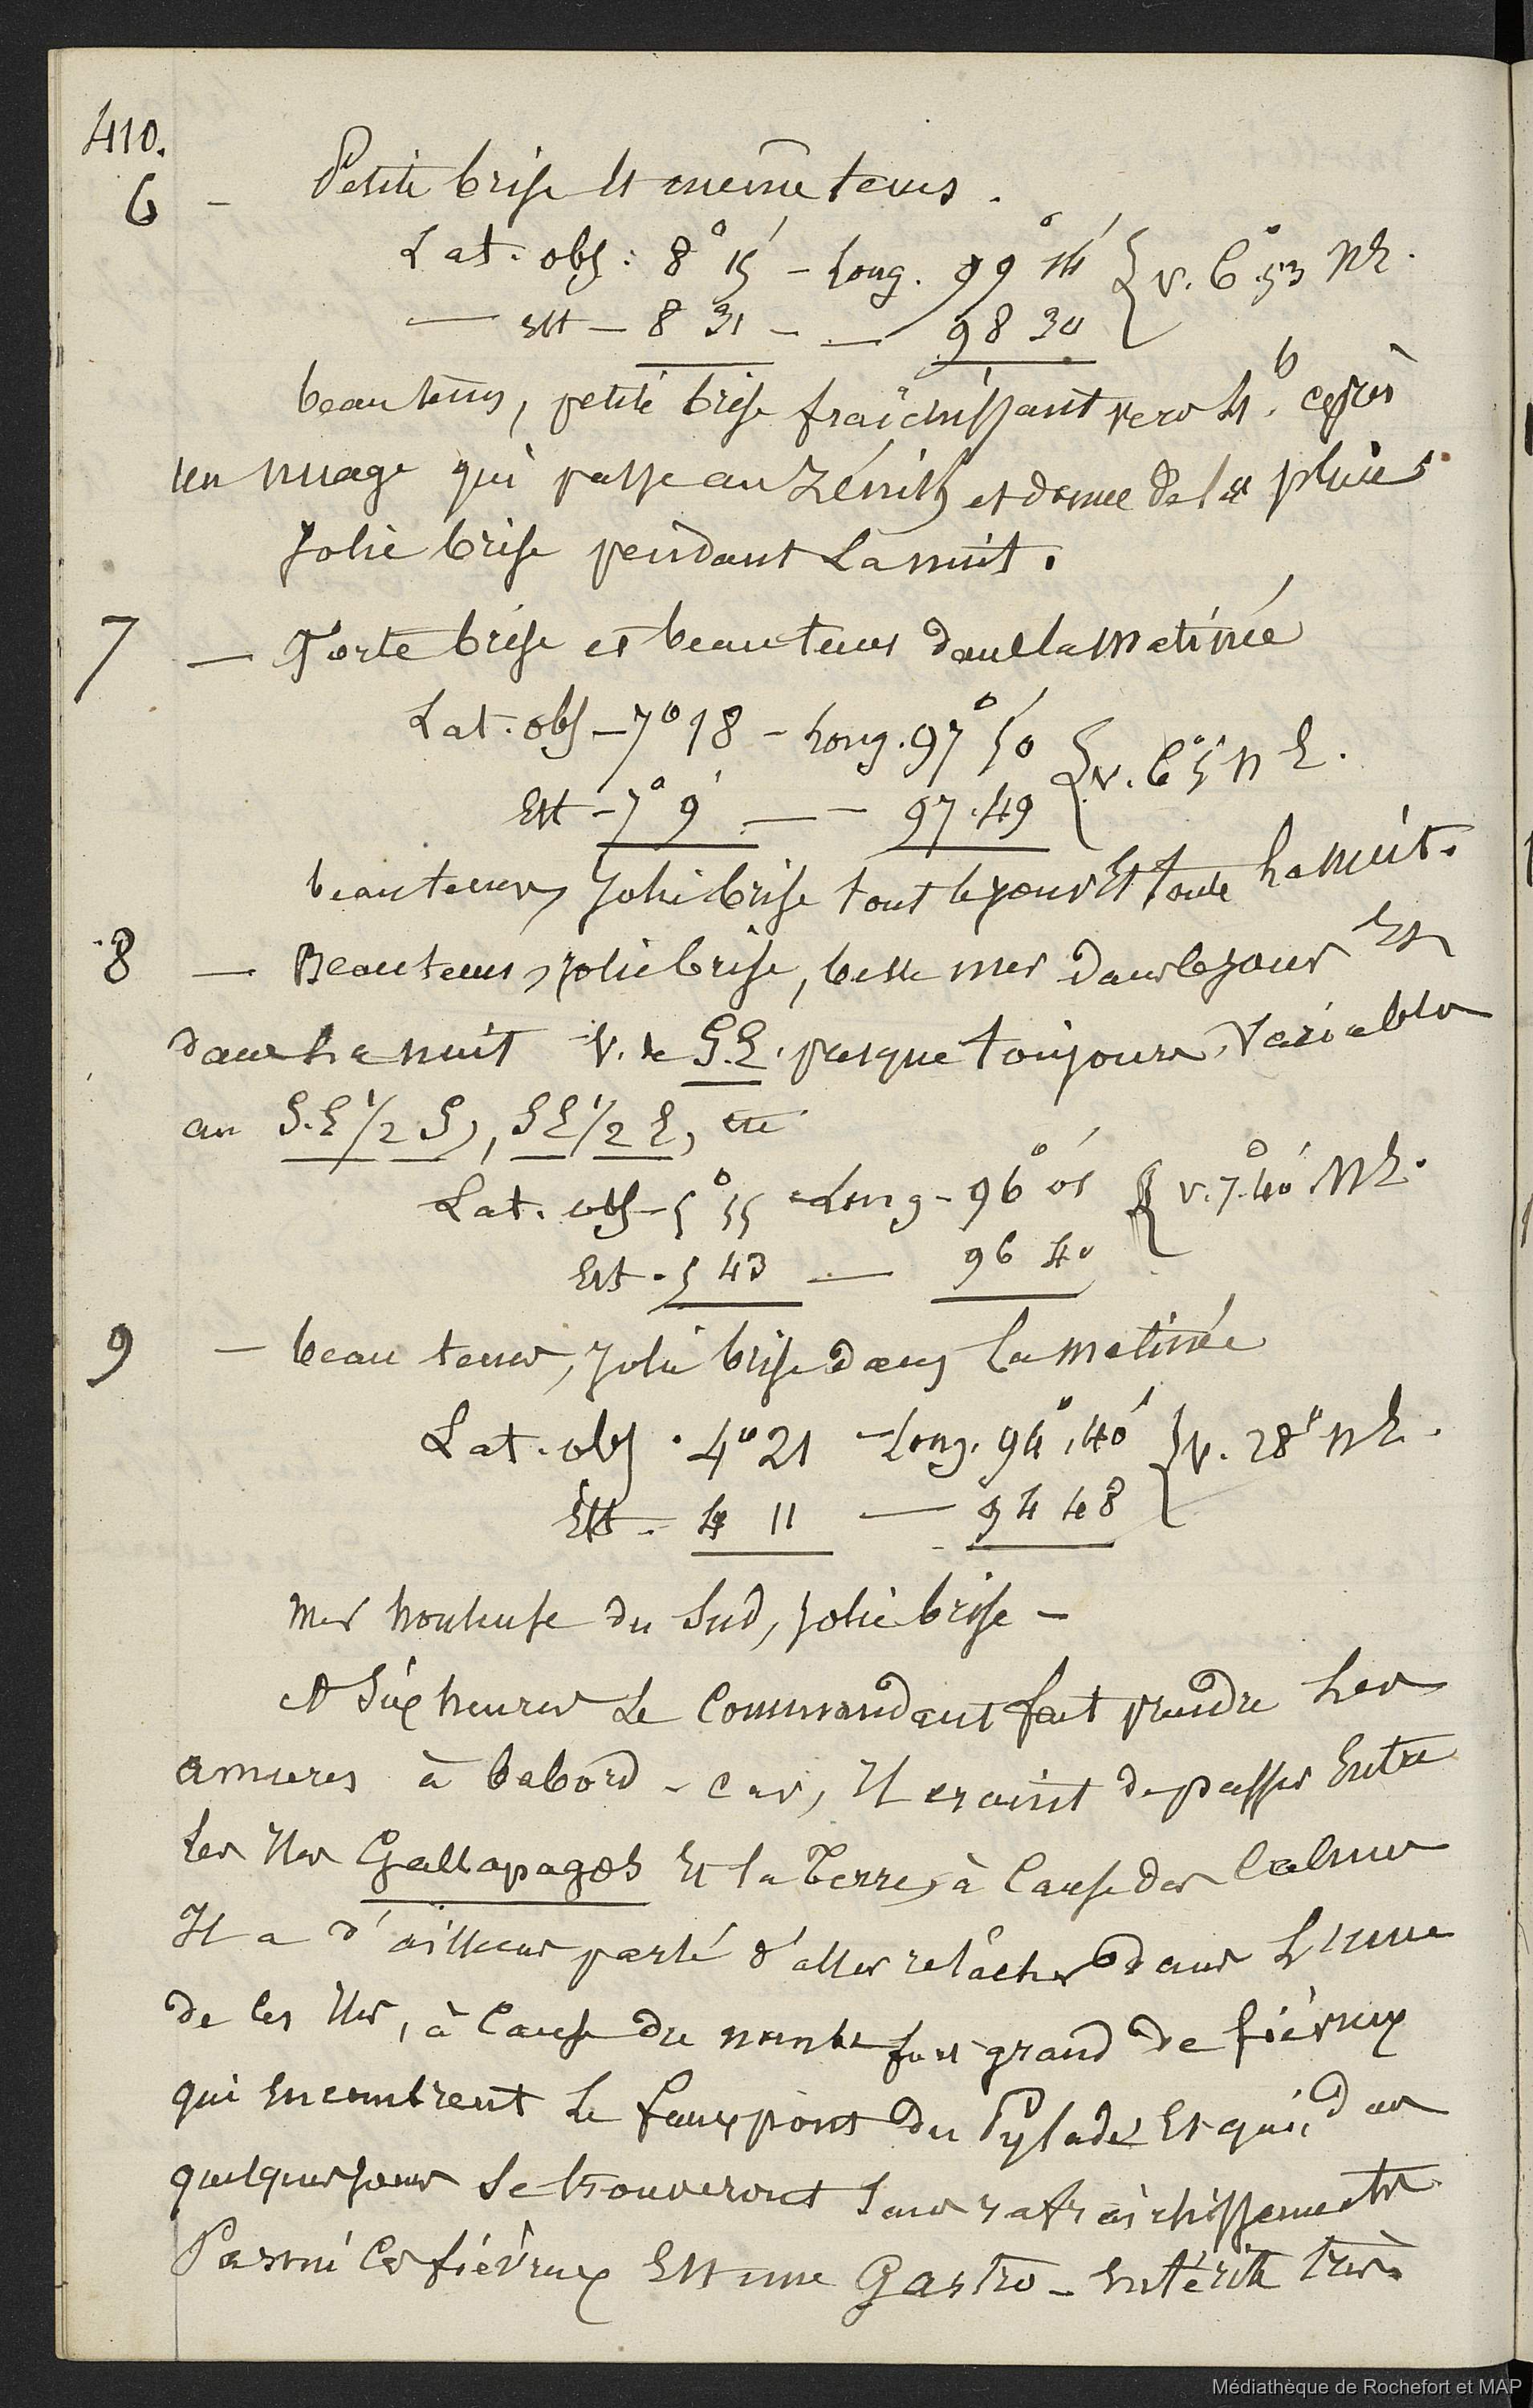 410.
6 - Petite brise et même tems.
Lat. obs: 8° 15' - Long. 99° 14' { v. 6° 53 NE.
— Est - 8 31 - — 98 30
beau tems, petite brise fraîchissant vers 4h. après
un nuage qui passe au zénith et donne de la pluie.
Jolie brise pendant La nuit.
7 — Forte brise et beau tems dans la matinée
Lat. obs - 7° 18 - Long. 97° 50' { v. 6° 5' NE.
Est - 7° 9' — - 97.49
beau tems, Jolie brise tout le jour Et toute La Nuit.
8 — Beau tems, jolie brise, belle mer dans le jour Et
dans La nuit V. de S.E. presque toujours, Variable
au S.E 1/2 S, SE 1/2 E, etc
Lat. obs - 5° 55 - Long - 96° 05' { v. 7° 40' NE.
Est - 5 43 — 96 40
9 — beau tems, Jolie brise dans La matinée
Lat. obs. 4° 21 - Long. 94°, 40' } v. 28' NE.
Est - 4 11 — 94 48
Mer houleuse du Sud, Jolie brise -
A Six heures Le Commandant fait prendre Les
amures à babord - car, Il craint de passer Entre
Les Iles Gallapagos Et la Terre, à Cause des Calmes
Il a d'ailleurs parlé d'aller relâcher dans L'une
de Ces Iles, à Cause du nombre fort grand de fiévreux
qui Encombrent Le faux pont du Pylade Et qui, dans
quelques jours Se trouveront Sans rafraichissements
Parmi Ces fiévreux Est une Gastro-Entérite très
Médiathèque de Rochefort et MAP